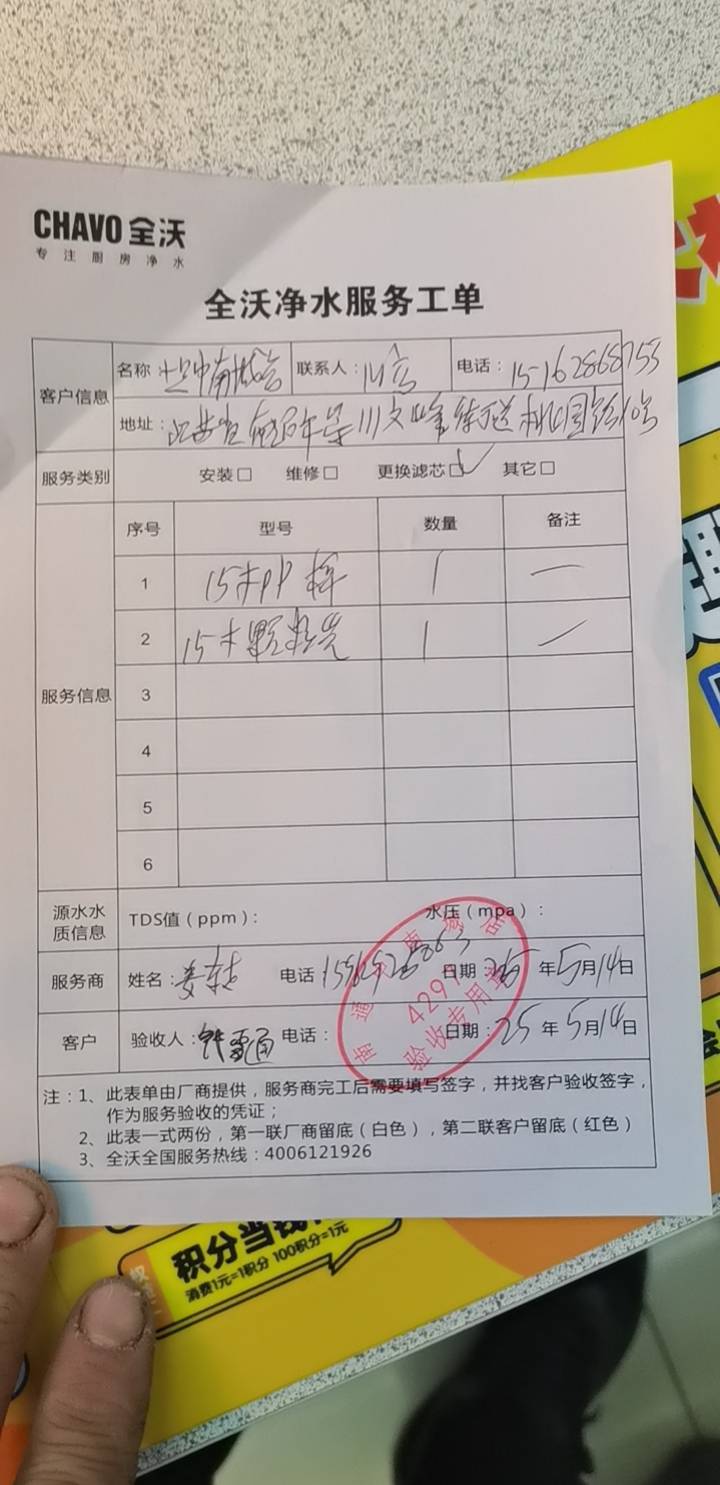 CHAVO 全沃
专注厨房净水
全沃净水服务工单
客户信息 名称 联系人： 电话：15-162868753
地址： 桃园路10号
服务类别 安装□ 维修□ 更换滤芯□✓ 其它□
服务信息 序号 型号 数量 备注
1 15寸PP棉 1 —
2 15寸颗粒炭 1 —
3
4
5
6
源水水质信息 TDS值（ppm）： 水压（mpa）：
服务商 姓名： 电话 日期：25年5月14日
客户 验收人： 电话： 日期：25年5月14日
南通 南城店
4291
验收专用章
注：1、此表单由厂商提供，服务商完工后需要填写签字，并找客户验收签字，
作为服务验收的凭证；
2、此表一式两份，第一联厂商留底（白色），第二联客户留底（红色）
3、全沃全国服务热线：4006121926
积分当钱
消费1元=1积分 100积分=1元